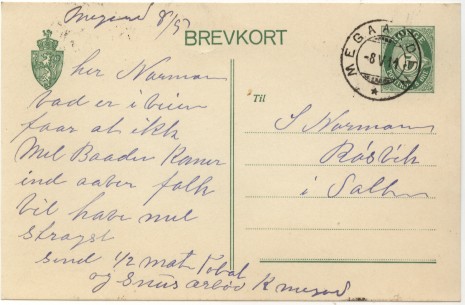 Megaard 8/5
BREVKORT
MEGAARD
-8 V 11
her Norman
vad er i veien
faar at ikk
Mel Baaden Komer
ind aaber folk
vil have mel
stragst
send 1/2 mat Tobak
og Snus ærbød K Megård
Til
S Norman
Røsvik
i Salten